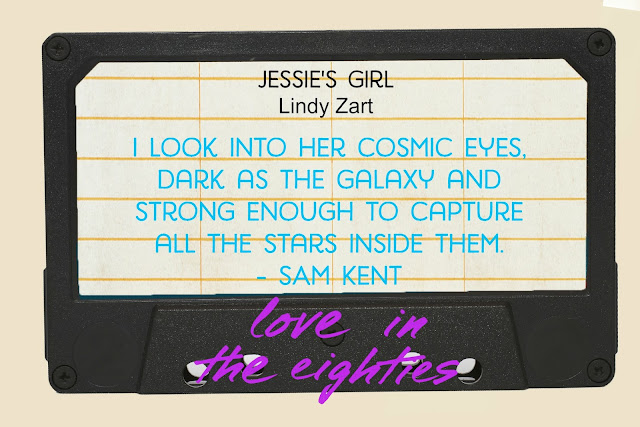 JESSIE'S GIRL
Lindy Zart
I LOOK INTO HER COSMIC EYES,
DARK AS THE GALAXY AND
STRONG ENOUGH TO CAPTURE
ALL THE STARS INSIDE THEM.
- SAM KENT
love in
the eighties